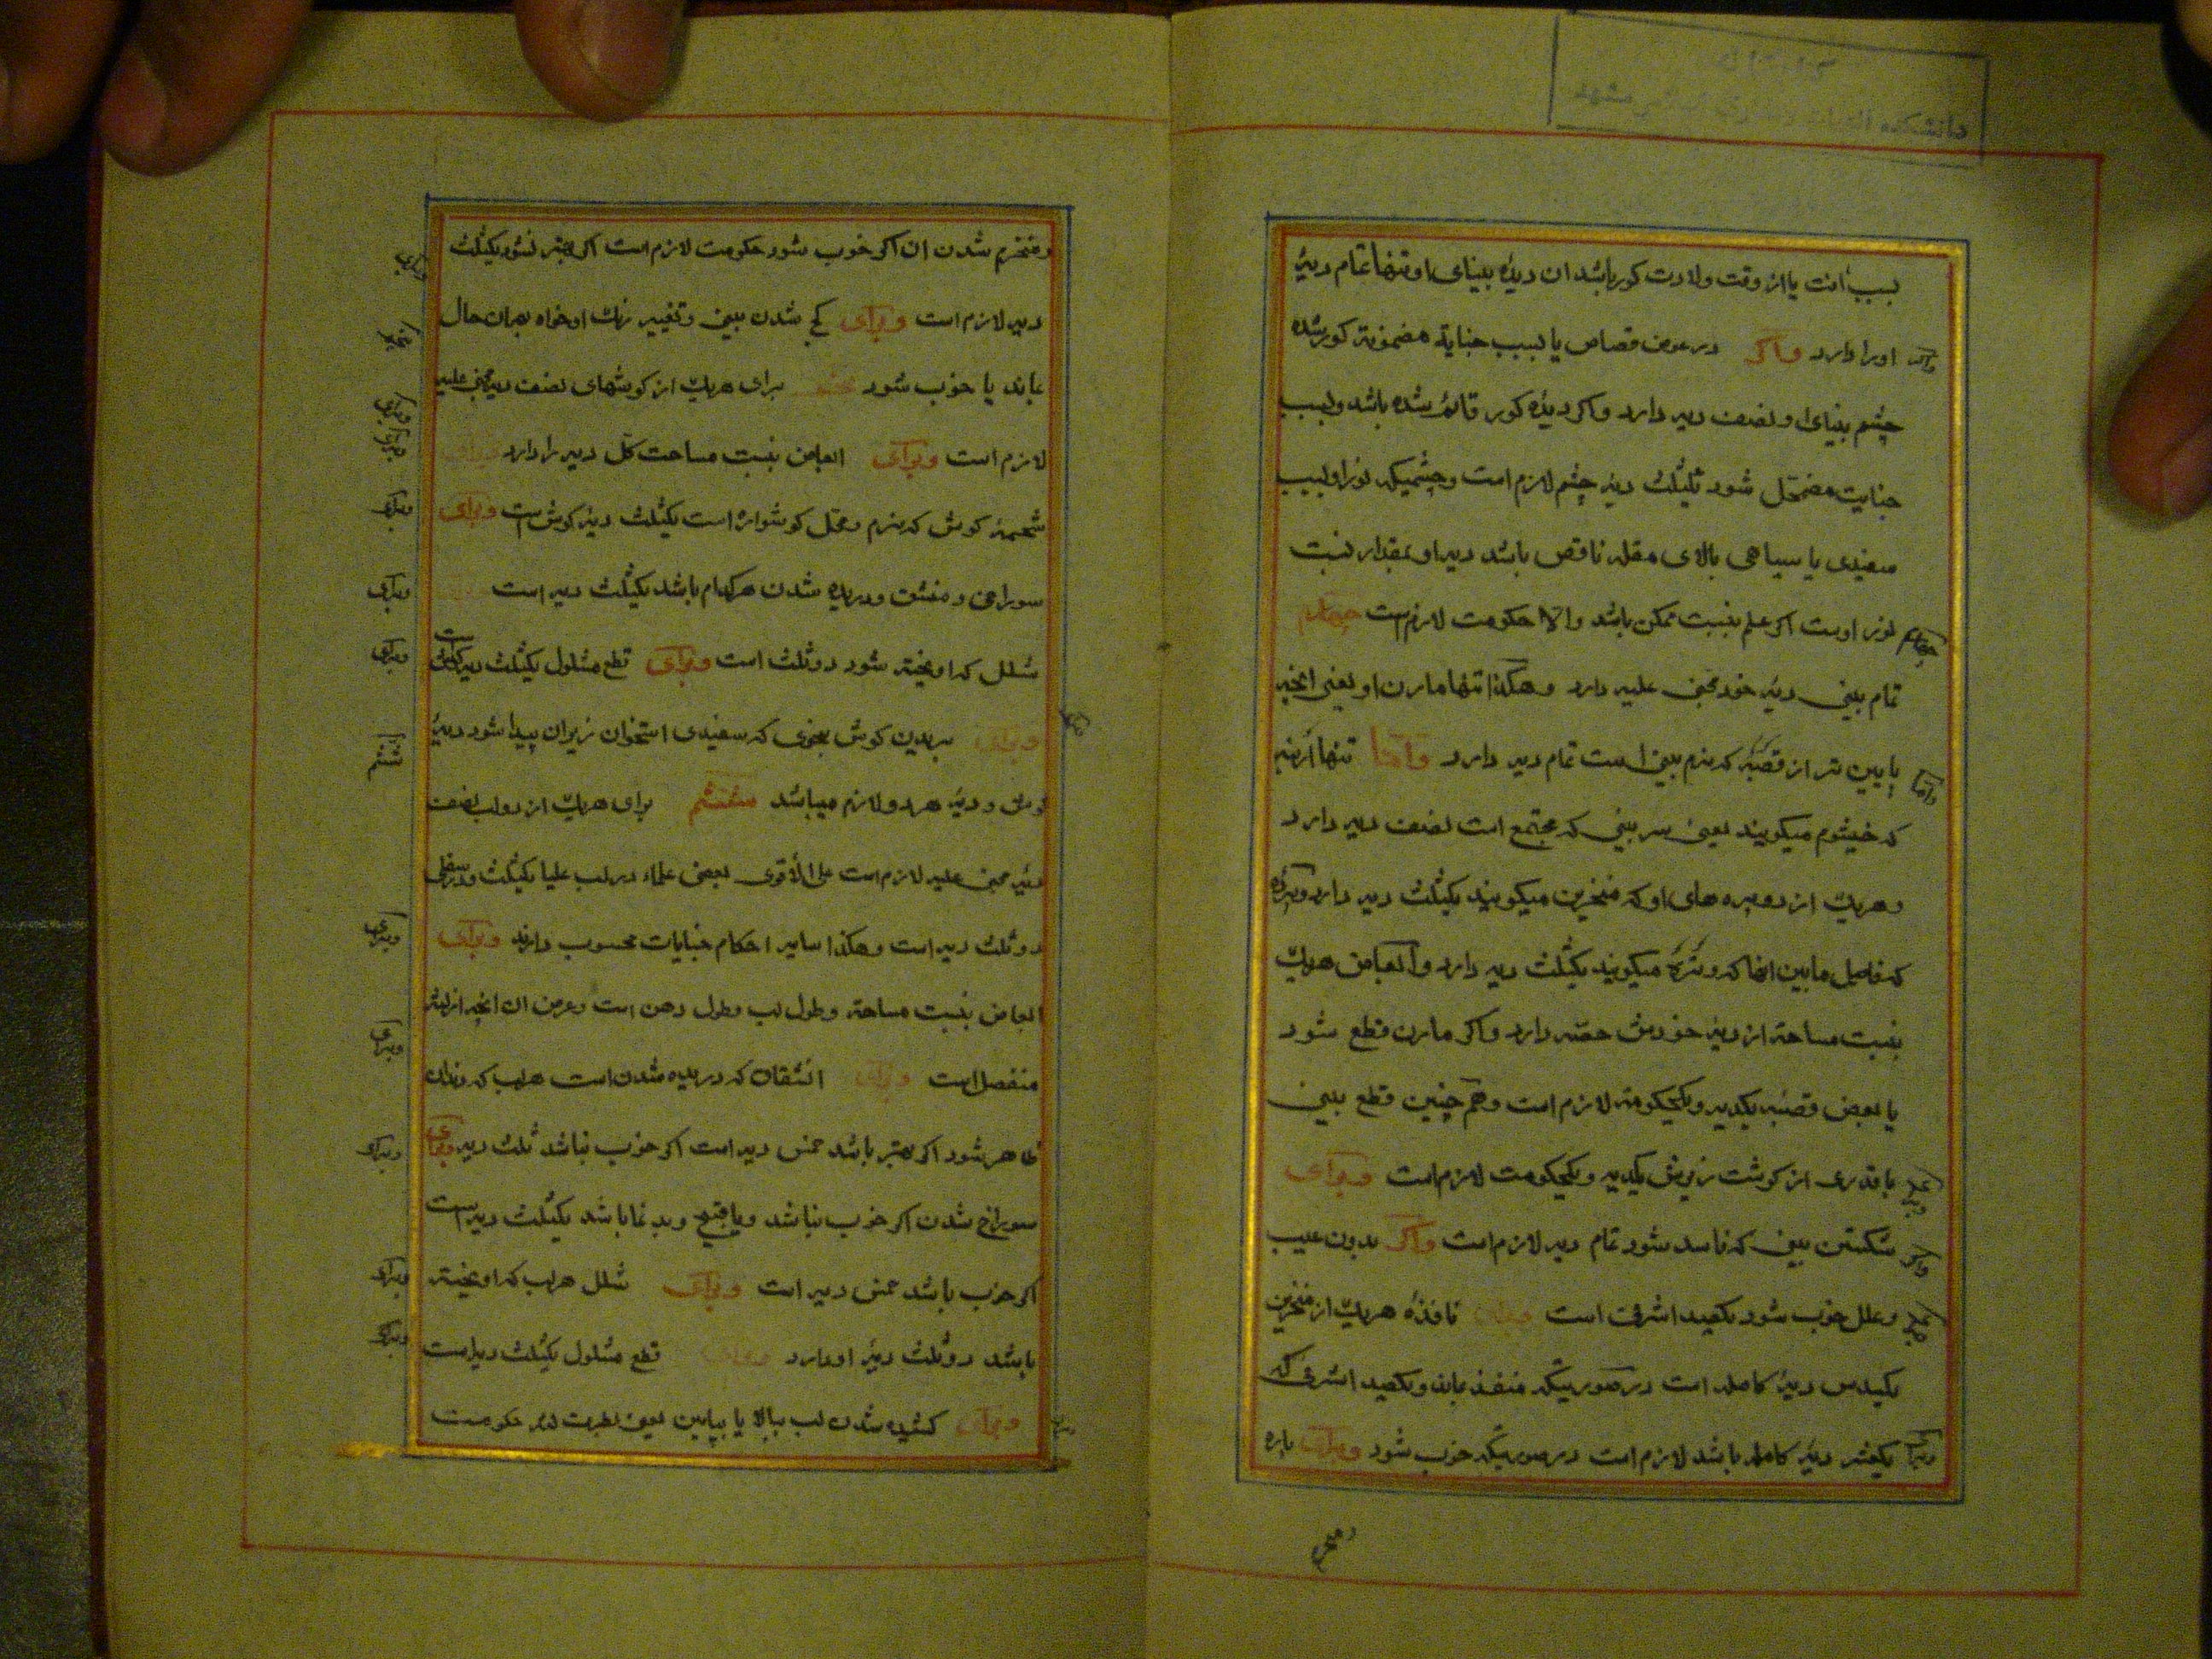 بسبب افت یا از وقت ولادت کور باشد ان دیدهٔ بینای او تنها تمام دیهٔ
او را دارد واکر در عوض قصاص یا بسبب جنایة مضمونة کور شده
چشم بینای او نصف دیه دارد واکر دیدهٔ کور قائم شده باشد وبسبب
جنایت مضمحل شود ثلیثلث دیهٔ چشم لازم است وچشمیکه نور او بسبب
سفیدی یا سیاهی بالای مقله ناقص باشد دیه او بمقدار نسبت
نور اوست اکر علم بنسبت ممکن باشد والا حکومت لازم است چهارم
تمام بینی دیهٔ خود مجنی علیه دارد وهکذا تنها مارن او یعنی انچه
پایین تر از قصبهٔ که نرم بینی است تمام دیه دارد واما تنها ارنبه
که خیشوم میکویند یعنی سر بینی که مجتمع است نصف دیه دارد
وهریک از دو پره های او که منخرین میکویند یکثلث دیه دارد وپردهٔ
که فاصل مابین انها که وترهٔ میکویند یکثلث دیه دارد وابعاض هریک
بنسبت مساحة از دیهٔ خودش حصّه دارد واکر مارن قطع شود
یا بعض قصبه یکدیه ویکحکومة لازم است وهم چنین قطع بینی
با قدری از کوشت زیرش یکدیه ویکحکومت لازم است وبرای
شکستن بینی که فاسد شود تمام دیه لازم است واکر بدون عیب
وعلل خوب شود یکصد اشرفی است وبرای نافذهٔ هریک از منخرین
یکسدس دیهٔ کامله است در صورتیکه منفذ بماند ویکصد اشرفی که
یکعشر دیهٔ کامله باشد لازم است در صورتیکه خوب شود وبرای پاره
ومنخرم
ومنخرم شدن ان اکر خوب شود حکومت لازم است اکر بهتر نشود یکثلث
دیه لازم است وبرای کج شدن بینی وتغییر رنک او خواه بهمان حال
بماند یا خوب شود پنجم برای هریک از کوشهای نصف دیهٔ مجنی علیه
لازم است وبرای ابعاض بنسبت مساحت کل دیه را دارد وبرای
شحمهٔ کوش که نرم ومحل کوشواره است یکثلث دیهٔ کوش است وبرای
سوراخی ومنشق ودریده شدن هرکدام باشد یکثلث دیه است
شلل که اویخته شود دوثلث است وبرای قطع مشلول یکثلث دیه کوش است
وبرای بریدن کوش بنحوی که سفیدی استخوان زیر ان پیدا شود دیهٔ
کوش ودیهٔ هر دو لازم میباشد ششم برای هریک از دو لب نصف
دیهٔ مجنی علیه لازم است علی الاقوی بعضی علماء در لب علیا یکثلث ودر سفلی
دوثلث دیه است وهکذا سایر احکام جنایات محسوب دارند وبرای
ابعاض بنسبت مساحة وطول لب وطول دهن است وعرض ان انچه از لثه
منفصل است وبرای انشقاق که دریده شدن است هرلب که دندان
ظاهر شود اکر بهتر باشد خمس دیه است اکر خوب نباشد ثلث دیه وبرای
سوراخ شدن اکر خوب نباشد ویا قبیح وبد نما باشد یکثلث دیه است
اکر خوب باشد خمس دیه است وبرای شلل هرلب که اویخته
باشد دوثلث دیهٔ او دارد وبرای قطع مشلول یکثلث دیه است
وبرای کشیده شدن لب ببالا یا بپایین یعنی بطرفت دیه حکومت